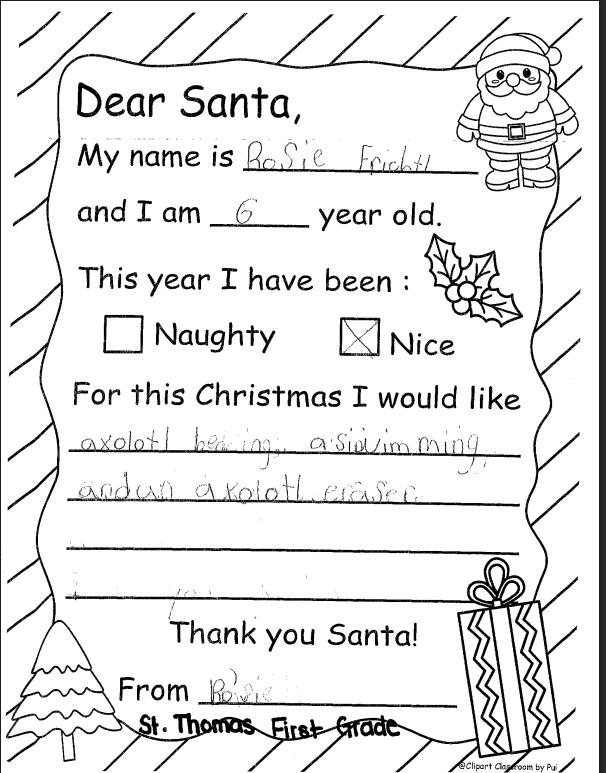 Dear Santa,
My name is Rosie
and I am 6 year old.
This year I have been :
Naughty Nice
For this Christmas I would like
axolotl a swimming,
and an axolotl eraser
Thank you Santa!
From Rosie
St. Thomas First Grade
@Clipart Classroom by Pui